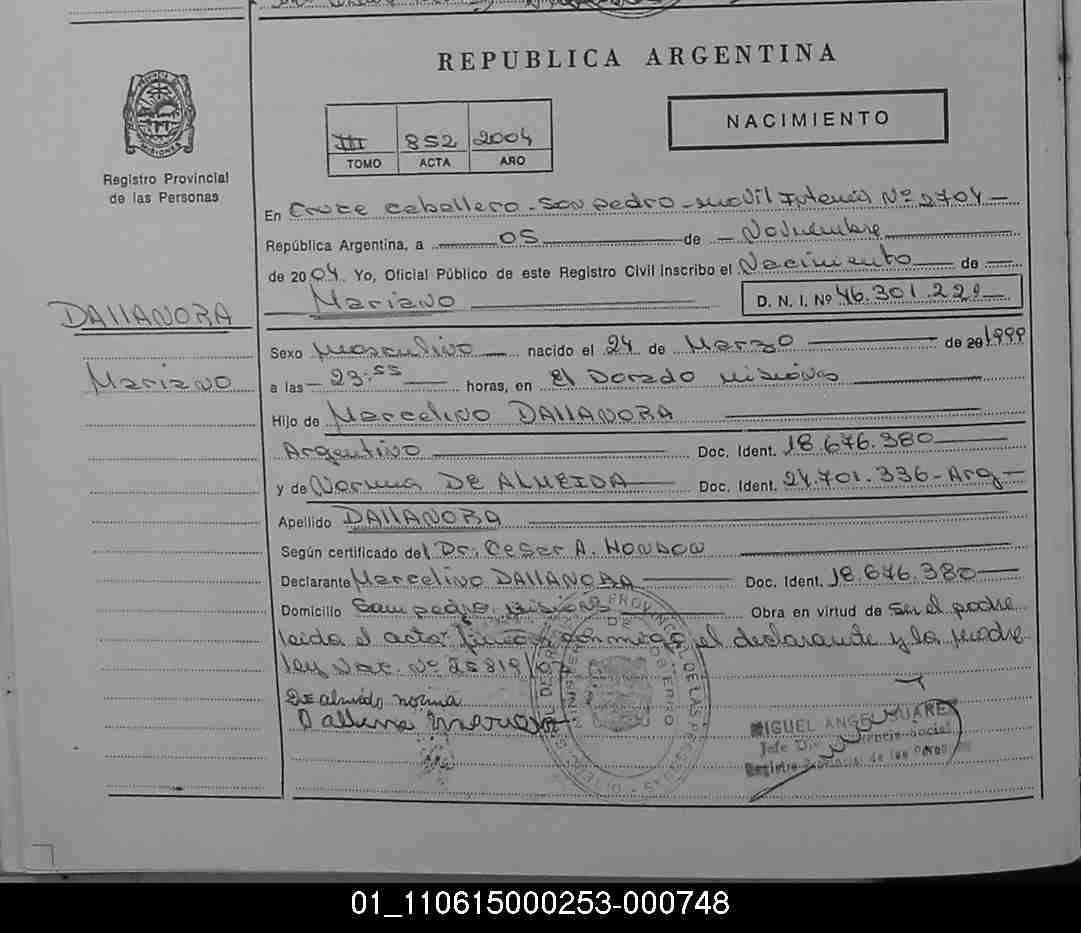 REPUBLICA ARGENTINA
NACIMIENTO
III 852 2004
TOMO ACTA AÑO
MISIONES
Registro Provincial
de las Personas
En Cruce Caballero - San Pedro - Movil Intercis Nº 2704 —
República Argentina, a 05 de - Noviembre
de 2004. Yo, Oficial Público de este Registro Civil inscribo el Nacimiento — de —
Mariano D. N. I. Nº 46.301.229 —
DALLANORA
Mariano
Sexo Masculino — nacido el 24 de Marzo — de 20 1999
a las - 23:55 — horas, en El Dorado Misiones
Hijo de Marcelino DALLANORA
Argentino — Doc. Ident. 18.676.380 —
y de Norma DE ALMEIDA — Doc. Ident. 24.701.336 - Arg —
Apellido DALLANORA
Según certificado del Dr. Cesar A. 
Declarante Marcelino DALLANORA — Doc. Ident. 18.676.380 —
Domicilio San pedro. Misiones — Obra en virtud de Ser el padre
leida el acta firma conmigo el declarante y la madre
ley Nac. Nº 25819/07
De almeido norma
Dallanora
MIGUEL ANGEL SUAREZ
Jefe Div. Social
Registro Provincial de las Personas
01_110615000253-000748